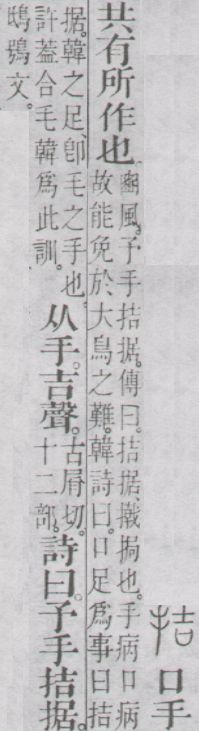 拮 口手
共有所作也
豳風。予手拮据。傳曰。拮据、撠挶也。手病口病
故能免於大鳥之難。韓詩曰。口足爲事曰拮
据。韓之足、卽毛之手也。
許葢合毛韓爲此訓。
从手。吉聲。
古屑切。
十二部。
詩曰。予手拮据。
鴟鴞文。